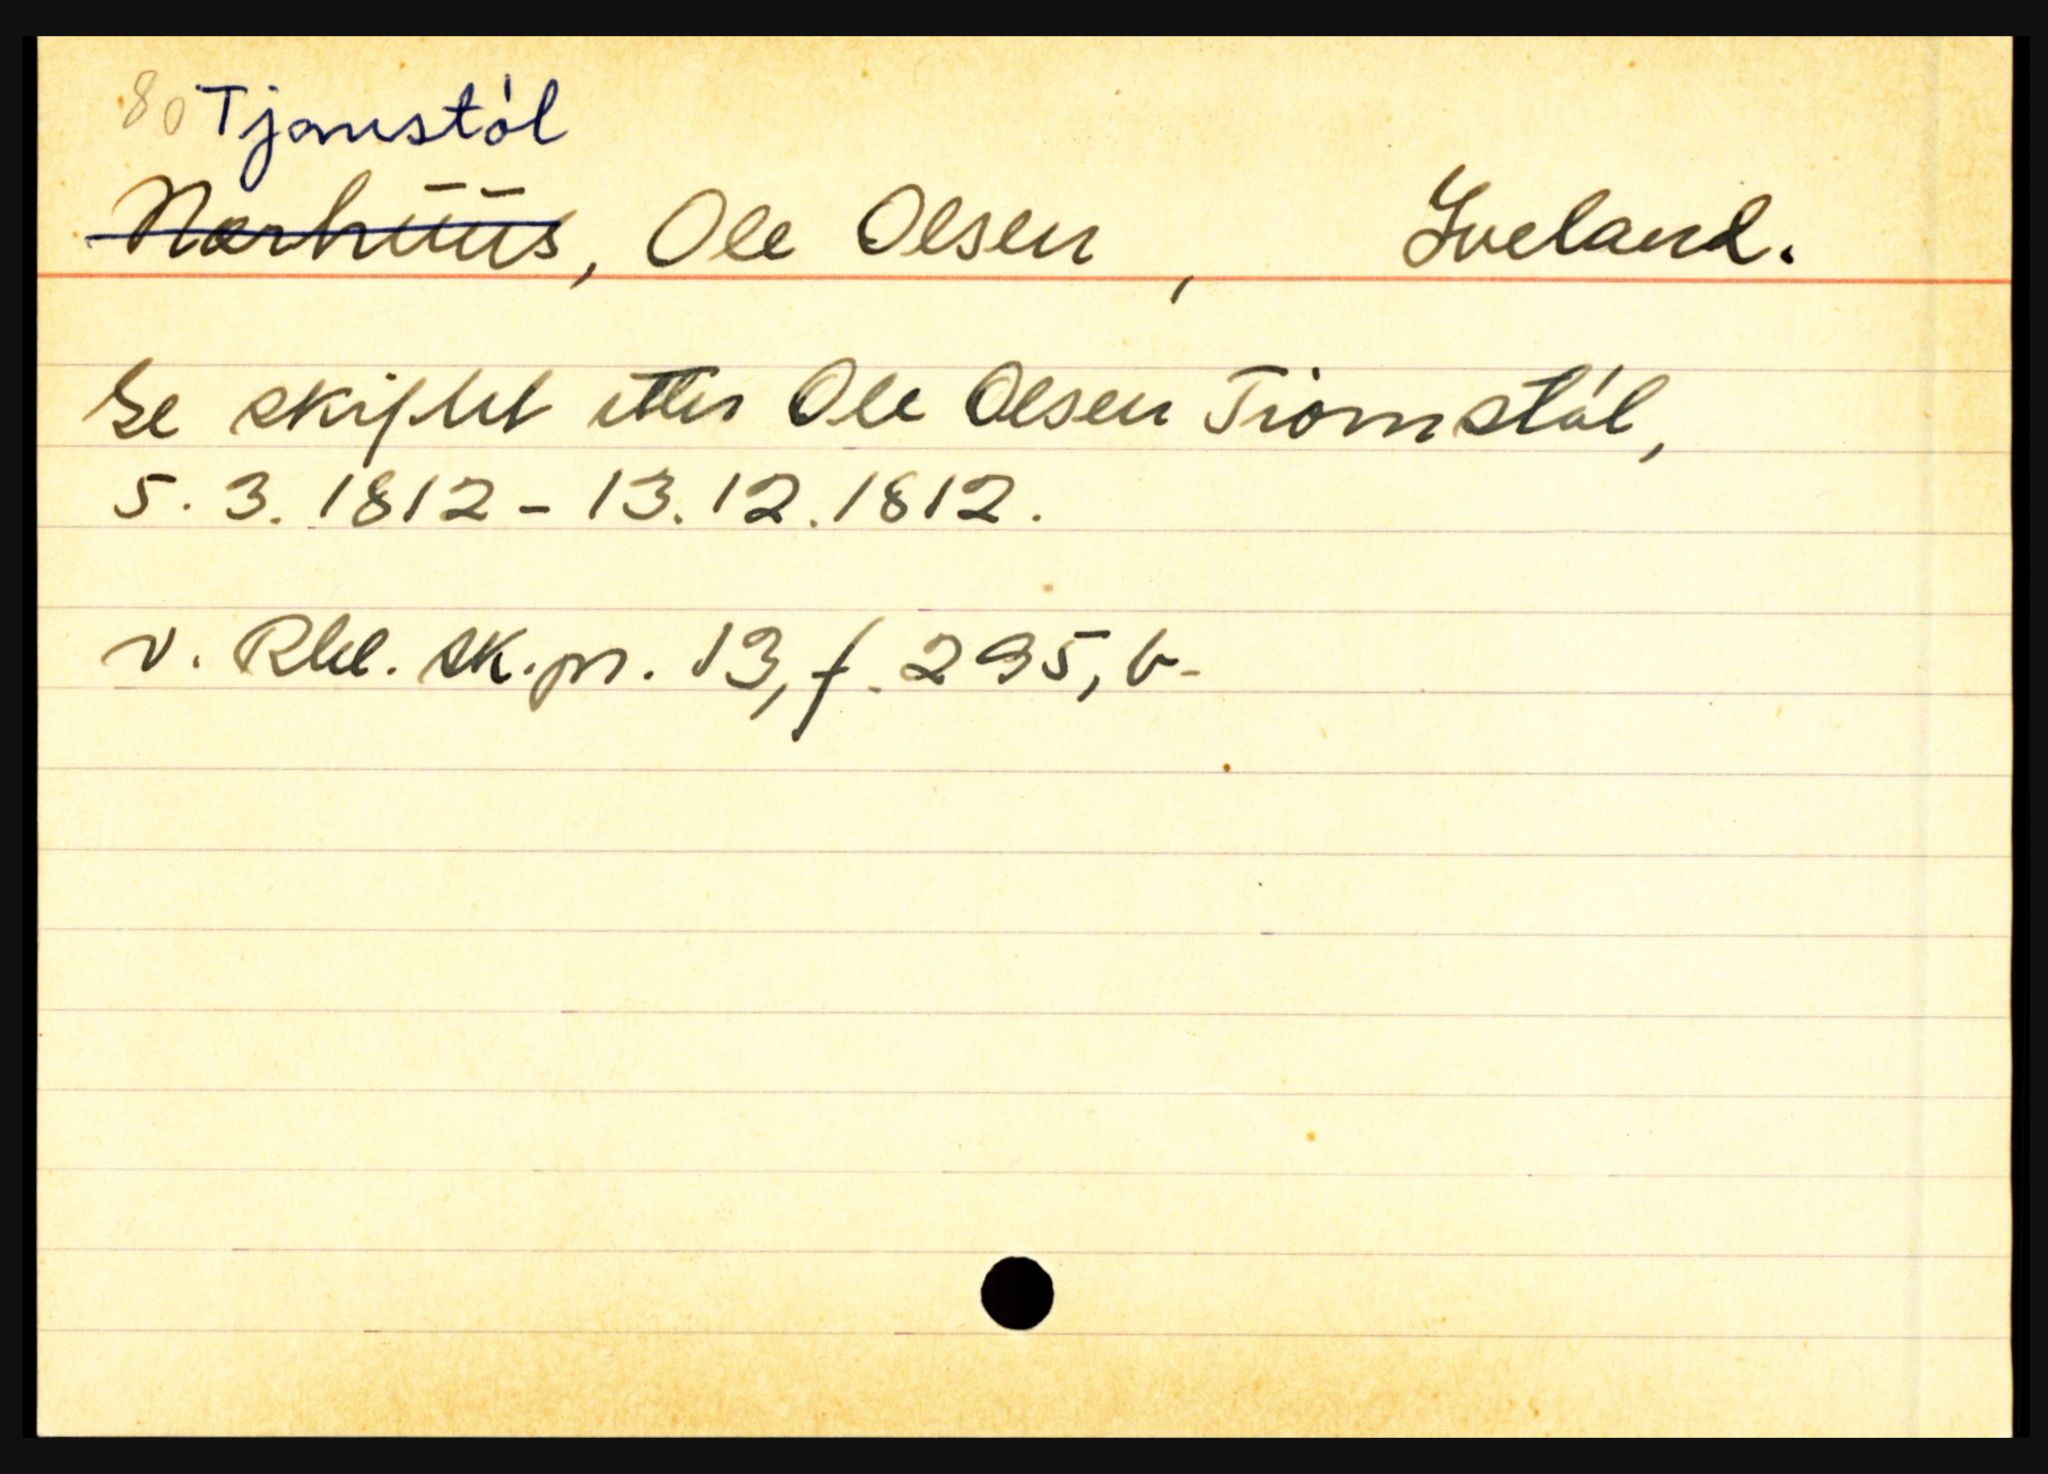 80 Tjomstøl
Nærhuus, Ole Olsen, Iveland.
Se skiftet etter Ole Olsen Tiomstøl,
5.3.1812 - 13.12.1812.
v. Rbl. sk.pr. 13, f. 295, b.